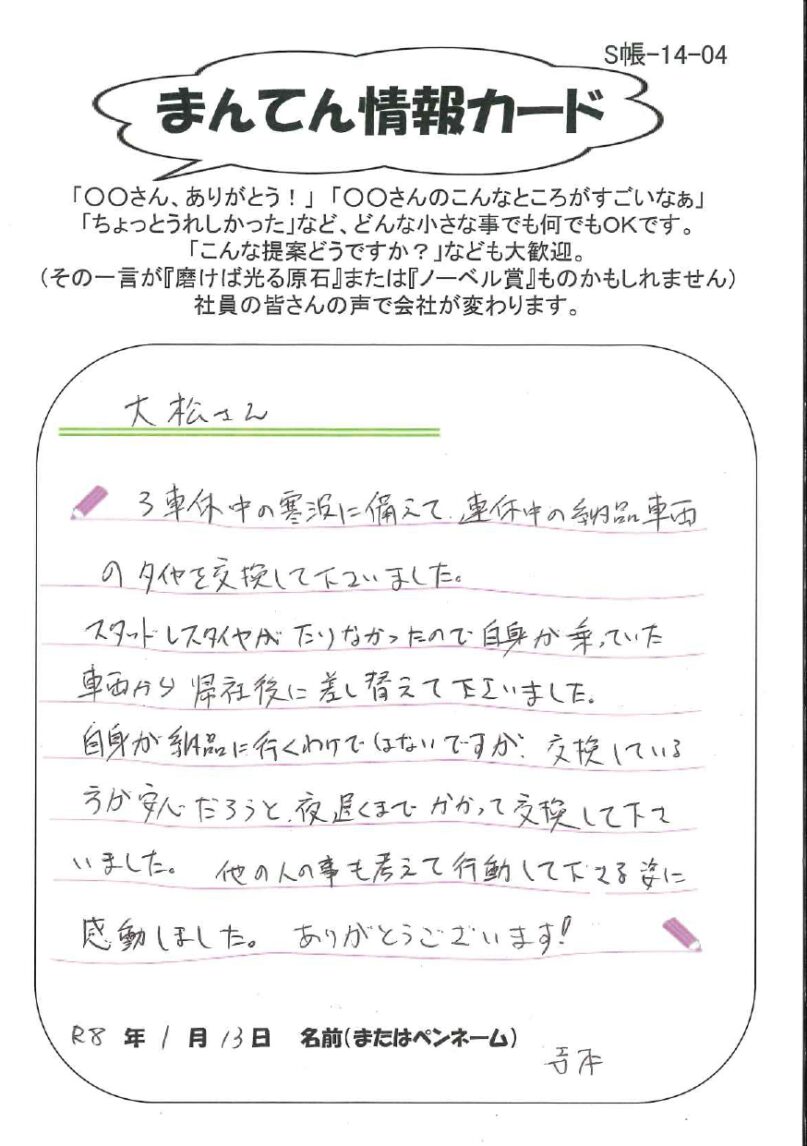 S帳-14-04
まんてん情報カード
「〇〇さん、ありがとう！」「〇〇さんのこんなところがすごいなぁ」
「ちょっとうれしかった」など、どんな小さな事でも何でもOKです。
「こんな提案どうですか？」なども大歓迎。
（その一言が『磨けば光る原石』または『ノーベル賞』ものかもしれません）
社員の皆さんの声で会社が変わります。
大松さん
3連休中の寒波に備えて、連休中の納品車両
のタイヤを交換して下さいました。
スタッドレスタイヤがたりなかったので自身が乗っていた
車両から帰社後に差し替えて下さいました。
自身が納品に行くわけではないですが、交換している
方が安心だろうと、夜遅くまでかかって交換して下さ
いました。 他の人の事も考えて行動して下さる姿に
感動しました。 ありがとうございます！
R8 年 1 月 13 日 名前（またはペンネーム）
吉本